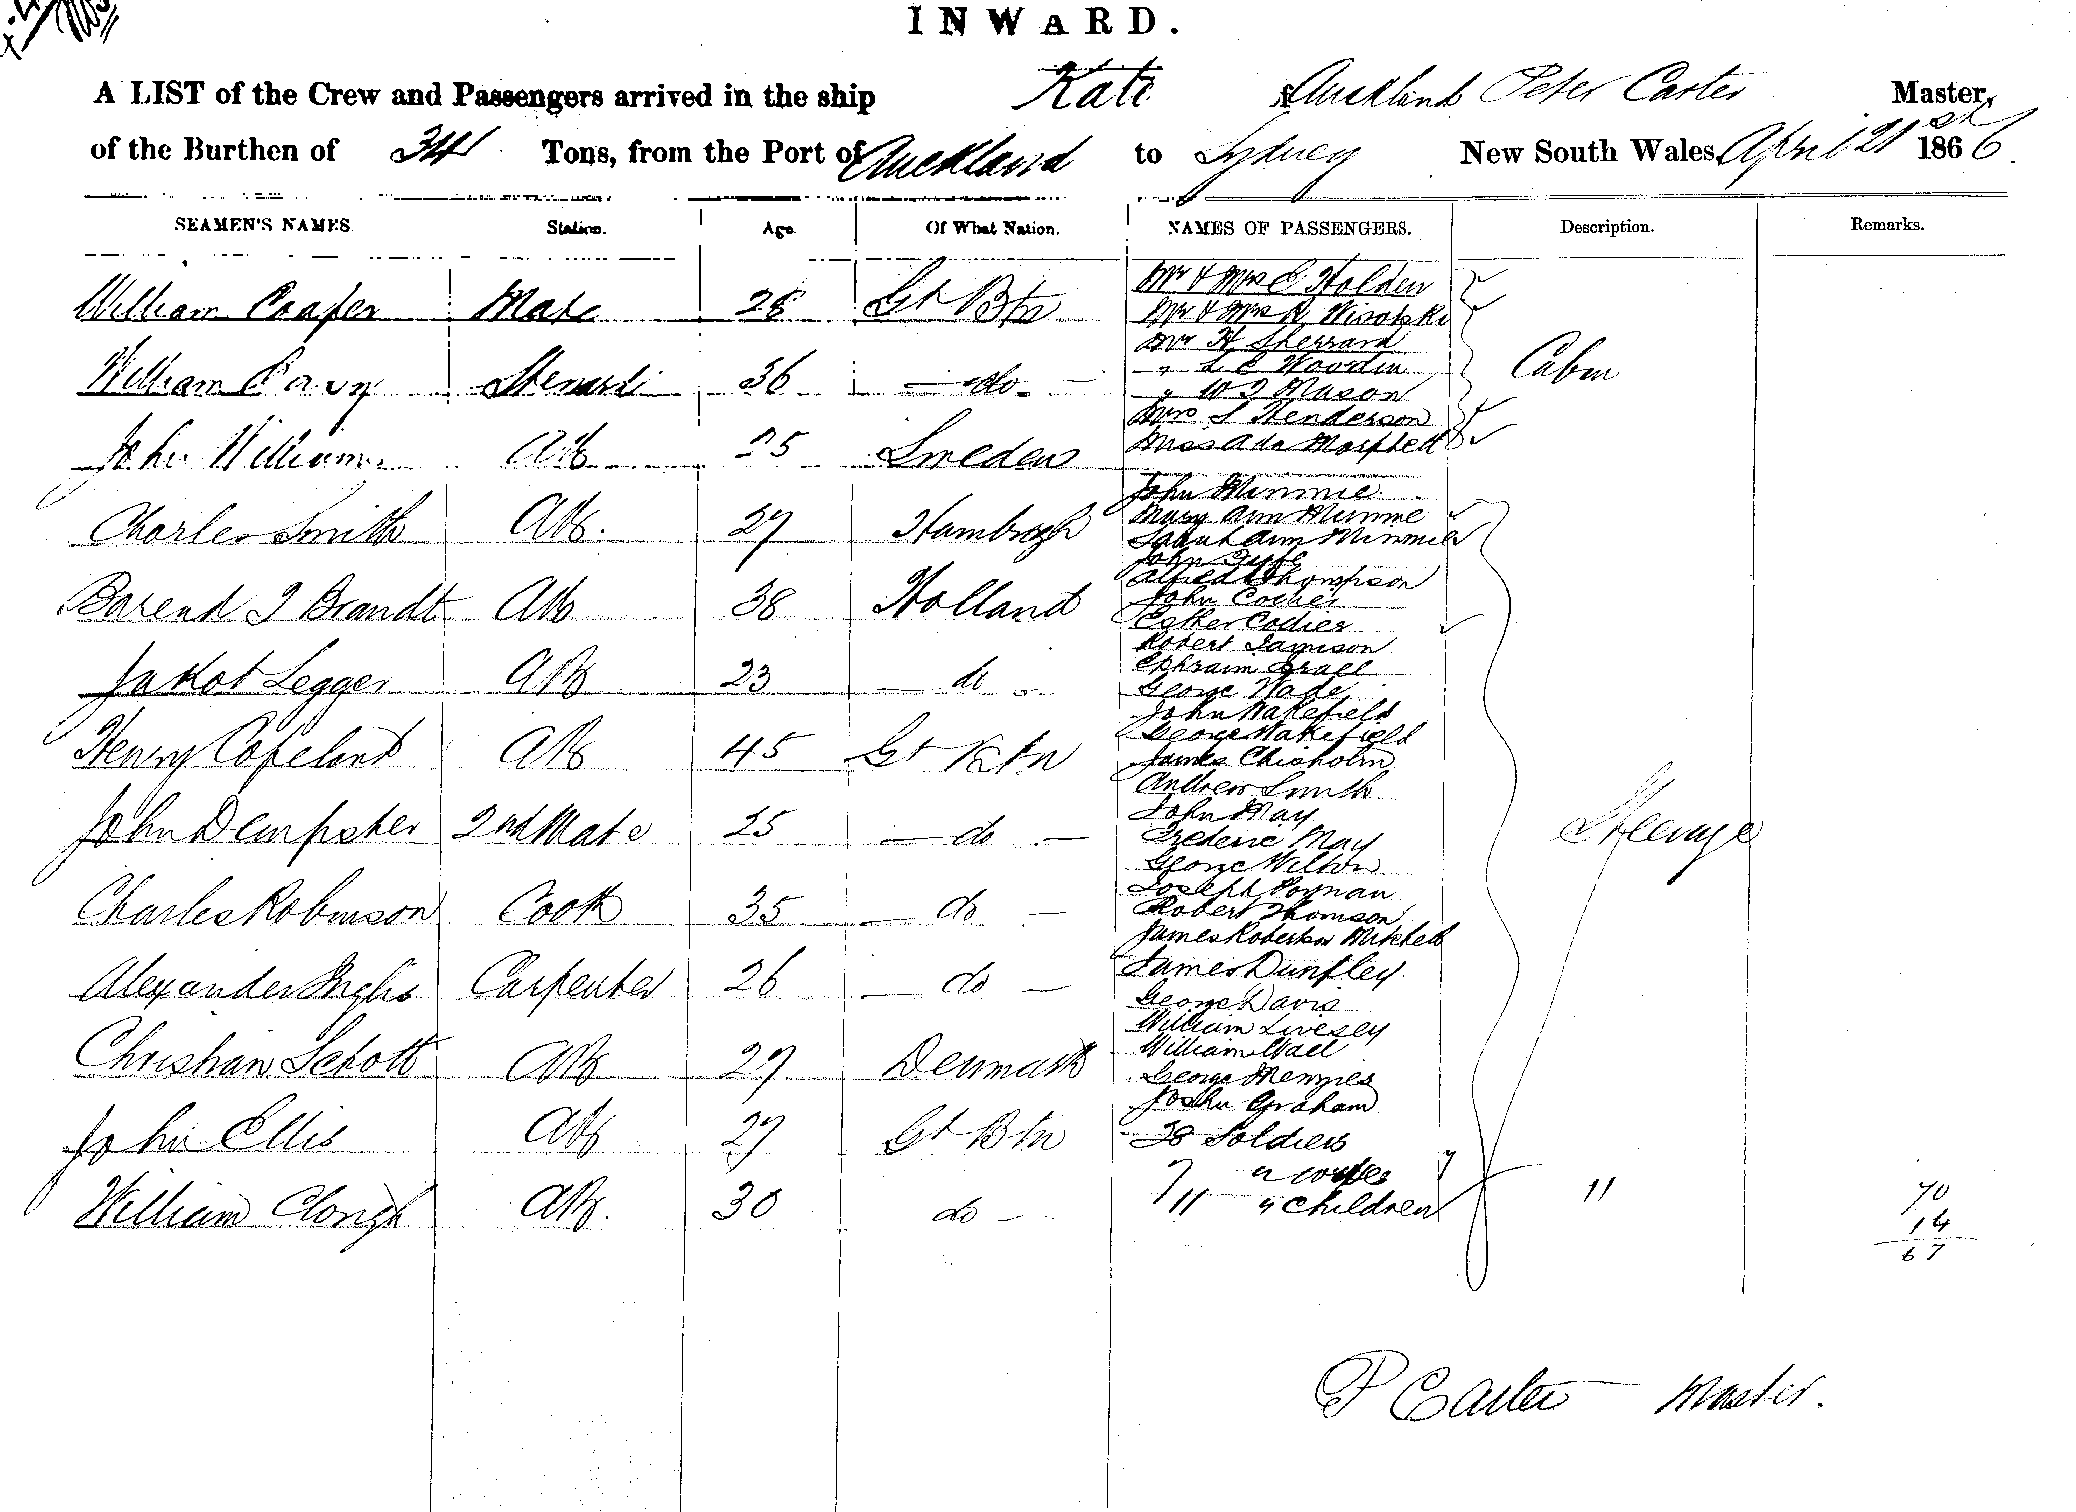 INWARD.
A LIST of the Crew and Passengers arrived in the ship Kate of Auckland Peter Carter Master,
of the Burthen of Tons, from the Port of Auckland to Sydney New South Wales, April 21st 1866.
SEAMEN'S NAMES. Station. Age. Of What Nation. NAMES OF PASSENGERS. Description. Remarks.
William Cooper Mate 28 Gt Btn
William Stewards 36 do
John Williams AB 25 Sweden
Charles Smith AB. 27 Hambrogh
Barend J Brandt AB 38 Holland
Jakob Legger AB 23 do
Henry Copeland AB 45 Gt Btn
John Dempster 2nd Mate 25 do
Charles Robinson Cook 35 do
Alexander Inglis Carpenter 26 do
Christian Schott AB 27 Denmark
John Ellis AB 27 Gt Btn
William Clough AB. 30 do
Mr & Mrs E Holden
Mr & Mrs R Wisotski
Mr H Sherrard
" L C Woodin
" W J Mason
Mrs S Henderson
Miss Ada
Cabin
John Minnie
Mary Ann Minnie
Sarah Ann Minnie
John
Alfred Thompson
John Codier
Esther Codier
Robert Jamison
Ephraim Grall
George Wade
John Wakefield
George Wakefield
James Chisholm
Andrew Smith
John May
Frederic May
George Wilton
Joseph
Robert Thomson
James Robertson Mitchell
James Dunfley
George Davis
William Livesey
William Wall
George Menzies
John Graham
Steerage
38 Soldiers
7 " wifes
11 " Children "
70
14
67
P Carter Master.